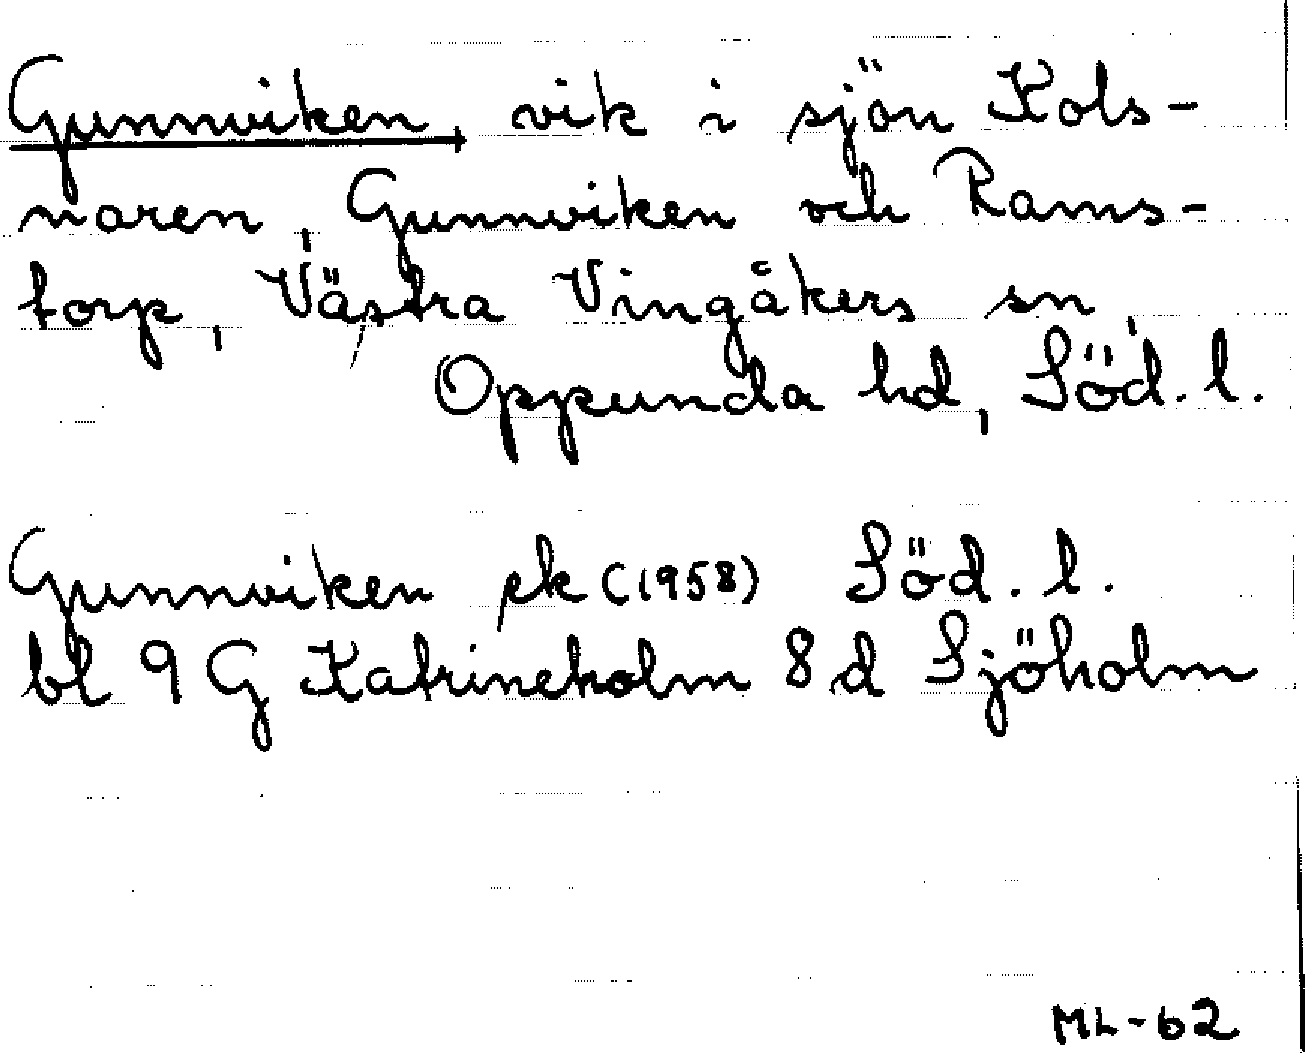 Gunnviken, vik i sjön Kols-
naren, Gunnviken och Rams-
torp, Västra Vingåkers sn,
Oppunda hd, Söd. l.
Gunnviken ek (1958) Söd. l.
bl 9 G Katrineholm 8 d Sjöholm
ML-62